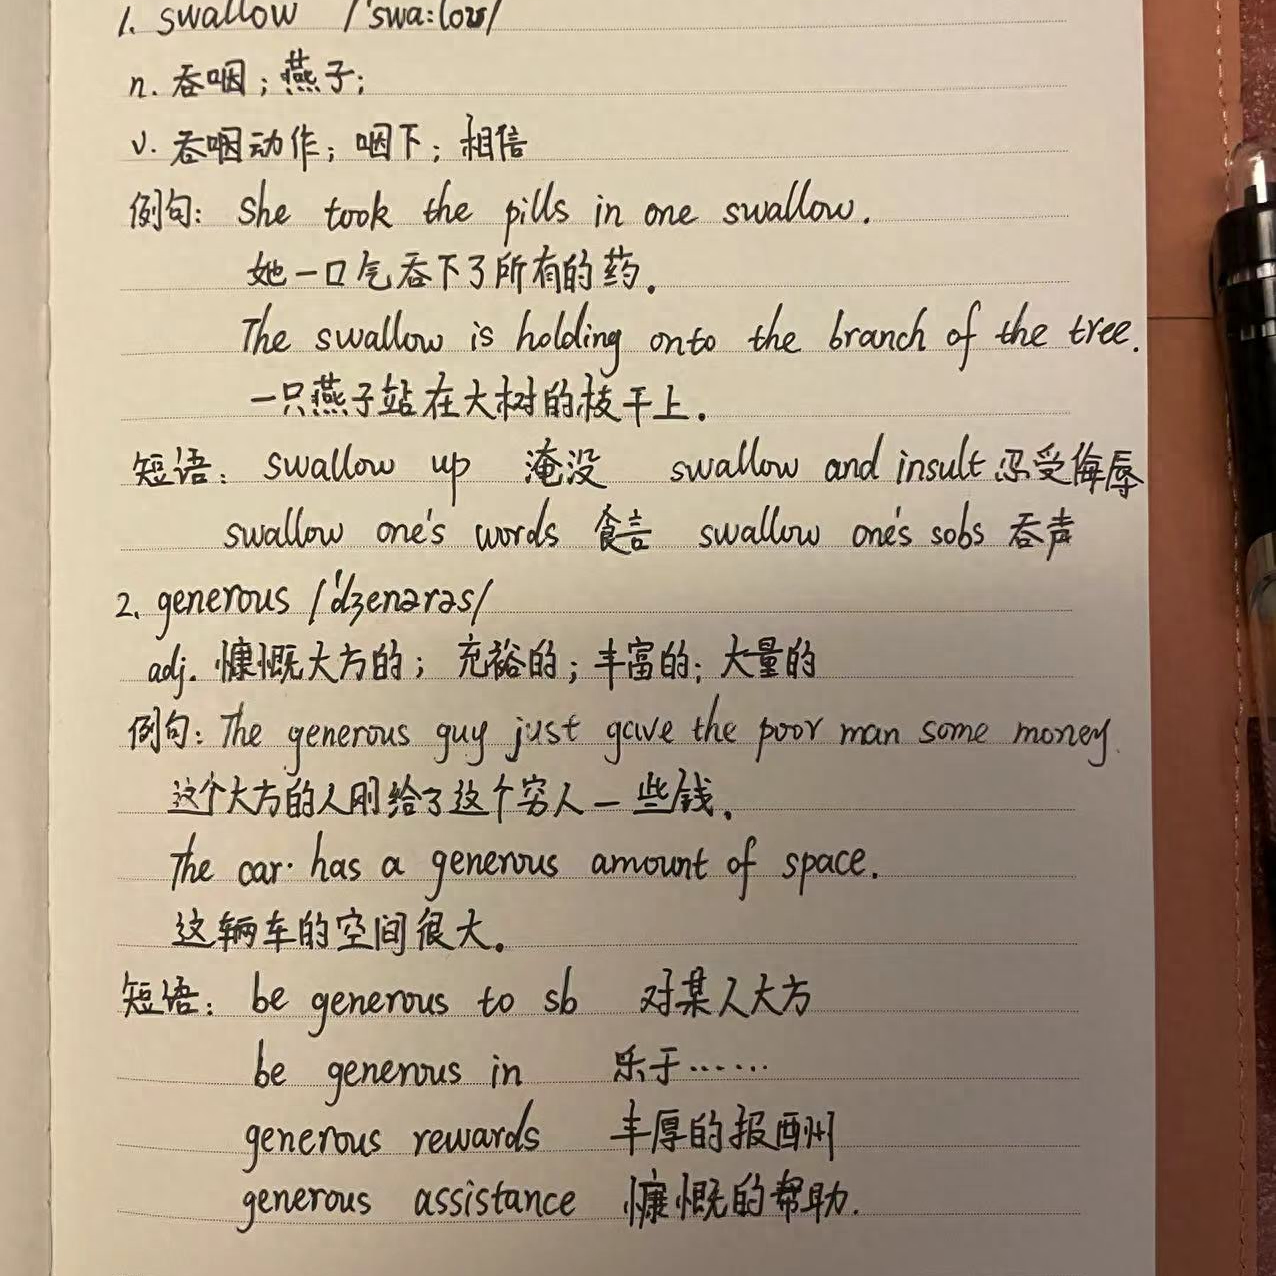 1. swallow /'swa:loʊ/
n. 吞咽；燕子；
v. 吞咽动作；咽下；相信
例句: She took the pills in one swallow.
她一口气吞下了所有的药.
The swallow is holding onto the branch of the tree.
一只燕子站在大树的枝干上.
短语: swallow up 淹没 swallow and insult 忍受侮辱
swallow one's words 食言 swallow one's sobs 吞声
2. generous /'dʒenərəs/
adj. 慷慨大方的；充裕的；丰富的；大量的
例句: The generous guy just gave the poor man some money.
这个大方的人刚给了这个穷人一些钱.
The car has a generous amount of space.
这辆车的空间很大.
短语: be generous to sb 对某人大方
be generous in 乐于……
generous rewards 丰厚的报酬
generous assistance 慷慨的帮助.